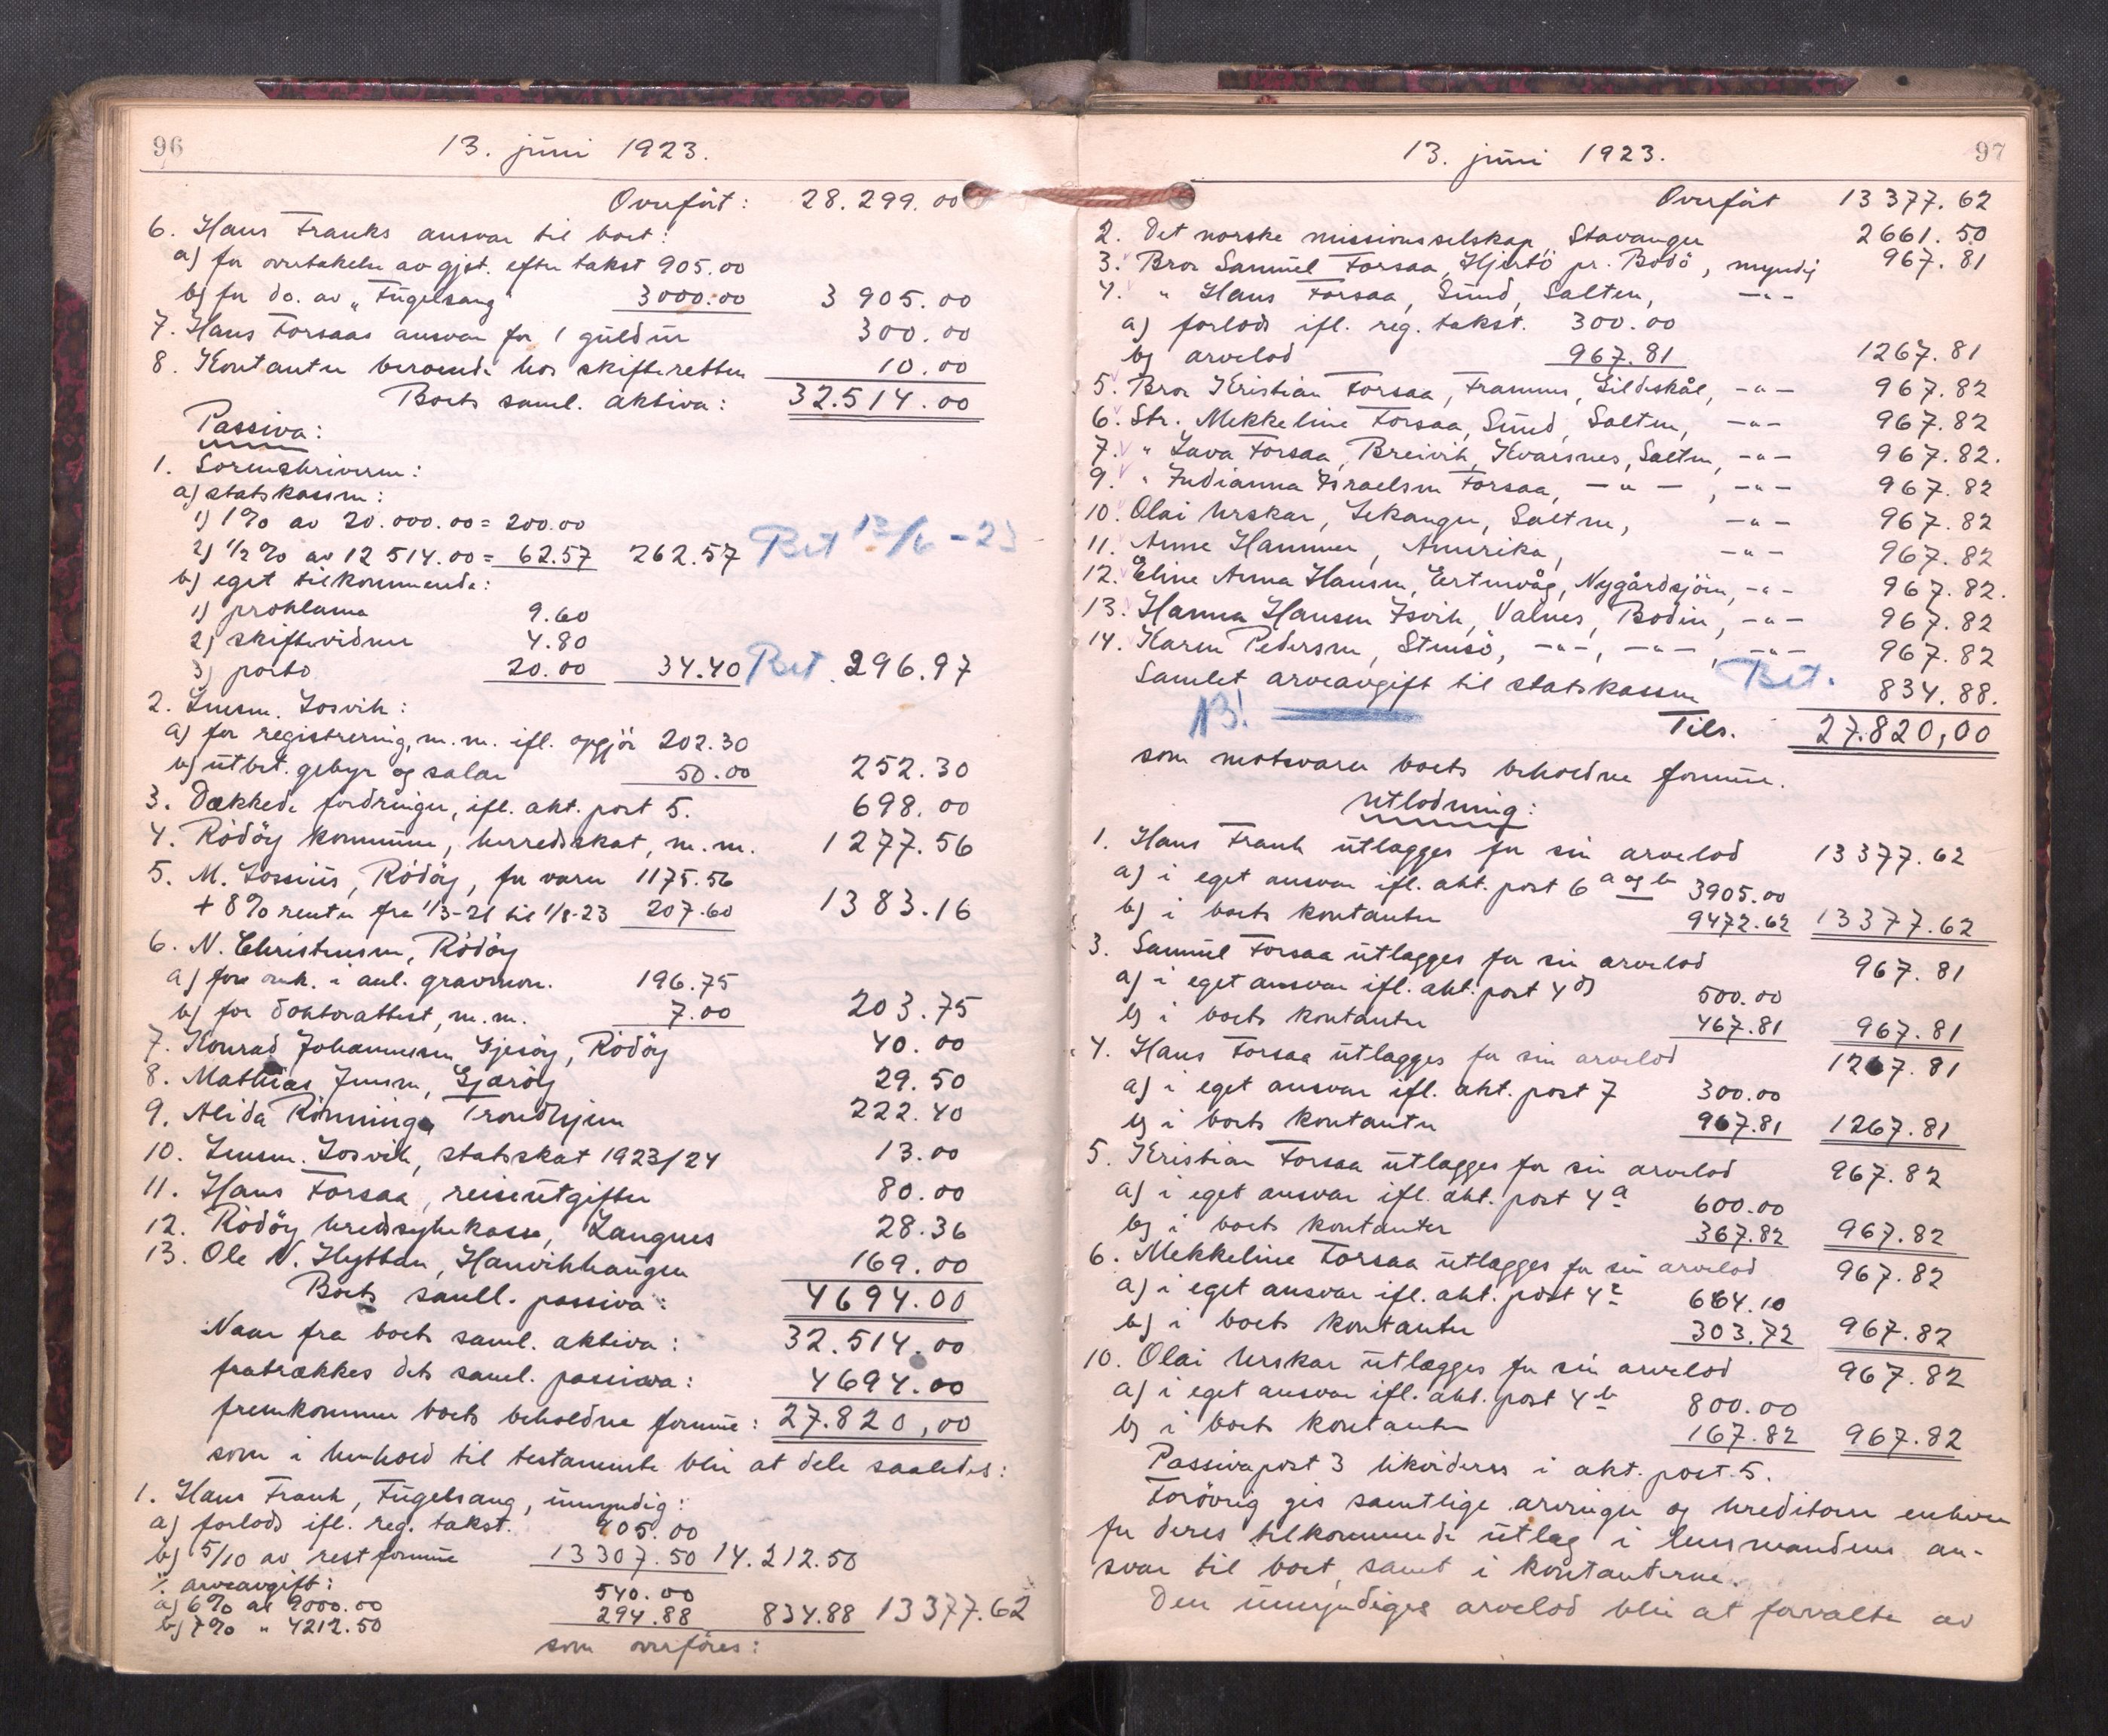 96
13. juni 1923.
Overført: 28.299.00
6. Hans Franks ansvar til boet:
a) for overtakelse av gjst. efter takst 905.00
b) for do. av "Fuglesang" 3000.00 3 905.00
7. Hans Forsaas ansvar for 1 guldur 300.00
8. Kontanter beroende hos skifteretten 10.00
Boets saml. aktiva: 32.514.00
Passiva:
1. Sorenskriveren:
a) statskassen:
1) 1% av 20.000.00 = 200.00
2) 1/2% av 12 514.00 = 62.57 262.57 Bet 13/6-23
b) eget tilkommende:
1) proklama 9.60
2) skiftevidner 4.80
3) porto 20.00 34.40 Bet. 296.97
2. Lensm. Losvik:
a) for registrering, m.m. ifl. opgjør 202.30
b) utbet. gebyr og salær 50.00 252.30
3. Dækkede fordringer, ifl. akt. post 5. 698.00
4. Rödöy kommune, herredsskat, m.m. 1277.56
5. M. Lossius, Rödöy, for varer 1175.56
+ 8% renter fra 1/3-21 til 1/8-23 207.60 1383.16
6. N. Christensen, Rödöy
a) for omk. i anl. gravmon. 196.75
b) for doktorattest, m.m. 7.00 203.75
7. Konrad Johannesen Gjesöy, Rödöy 40.00
8. Mathias Jensen, Gjæröy 29.50
9. Alida Rönninga Trondhjem 222.40
10. Lensm. Losvik, statsskat 1923/24 13.00
11. Hans Forsaa, reiseutgifter 80.00
12. Rödöy kredssykekasse, Langnes 28.36
13. Ole N. Hybban, Hanvikhaugen 169.00
Boets saml. passiva: 4694.00
Naar fra boets saml. aktiva: 32.514.00
fratrækkes dets saml. passiva: 4694.00
fremkommer boets beholdne formue: 27.820,00
som i henhold til testamente blir at dele saaledes:
1. Hans Frank, Fuglesang, umyndig:
a) forlods ifl. reg. takst. 905.00
b) 5/10 av restformue 13307.50 14.212.50
% arveavgift:
a) 6% av 9000.00 540.00
b) 7% " 4212.50 294.88 834.88 13377.62
som overføres:
13. juni 1923.
97
Overført 13377.62
2. Det norske missionsselskap, Stavanger 2661.50
3. Bror Samuel Forsaa, Hjertö pr. Bodö, myndig 967.81
4. " Hans Forsaa, Sund, Salten, -"-
a) forlods ifl. reg. takst. 300.00
b) arvelod 967.81 1267.81
5. Bror Kristian Forsaa, Framnes, Gildeskål, -"- 967.82
6. Str. Mekkeline Forsaa, Sund, Salten, -"- 967.82
7. " Lava Forsaa, Breivik, Kvarsnes, Salten, -"- 967.82.
9. " Indianna Israelsen Forsaa, -"-, -"- 967.82
10. Olai Urskar, Lekanger, Salten, -"- 967.82
11. Anne Hammer, Amerika, -"- 967.82
12. Eline Anna Hansen, Eertenvåg, Nygårdsjöen, -"- 967.82.
13. Hanna Hansen Isvik, Valnes, Bodin, -"- 967.82
14. Karen Pedersen, Stensö, -"-, -"-, -"- 967.82
Samlet arveavgift til statskassen Bet. 834.88.
NB! Tils. 27.820,00
som motsvarer boets beholdne formue.
Utlodning:
1. Hans Frank utlægges for sin arvelod 13377.62
a) i eget ansvar ifl. akt. post 6 a og b 3905.00
b) i boets kontanter 9472.62 13377.62
3. Samuel Forsaa utlægges for sin arvelod 967.81
a) i eget ansvar ifl. akt. post 4 d) 500.00
b) i boets kontanter 467.81 967.81
4. Hans Forsaa utlægges for sin arvelod 1267.81
a) i eget ansvar ifl. akt. post 7 300.00
b) i boets kontanter 967.81 1267.81
5. Kristian Forsaa utlægges for sin arvelod 967.82
a) i eget ansvar ifl. akt. post 4 a 600.00
b) i boets kontanter 367.82 967.82
6. Mekkeline Forsaa utlægges for sin arvelod 967.82
a) i eget ansvar ifl. akt. post 4 c 664.10
b) i boets kontanter 303.72 967.82
10. Olai Urskar utlægges for sin arvelod 967.82
a) i eget ansvar ifl. akt. post 4 b 800.00
b) i boets kontanter 167.82 967.82
Passivapost 3 likvideres i akt. post. 5.
Forövrig gis samtlige arvinger og kreditorer enhver
for deres tilkommende utlæg i lensmandens an-
svar til boet, samt i kontanterne.
Den umyndiges arvelod blir at forvalte av